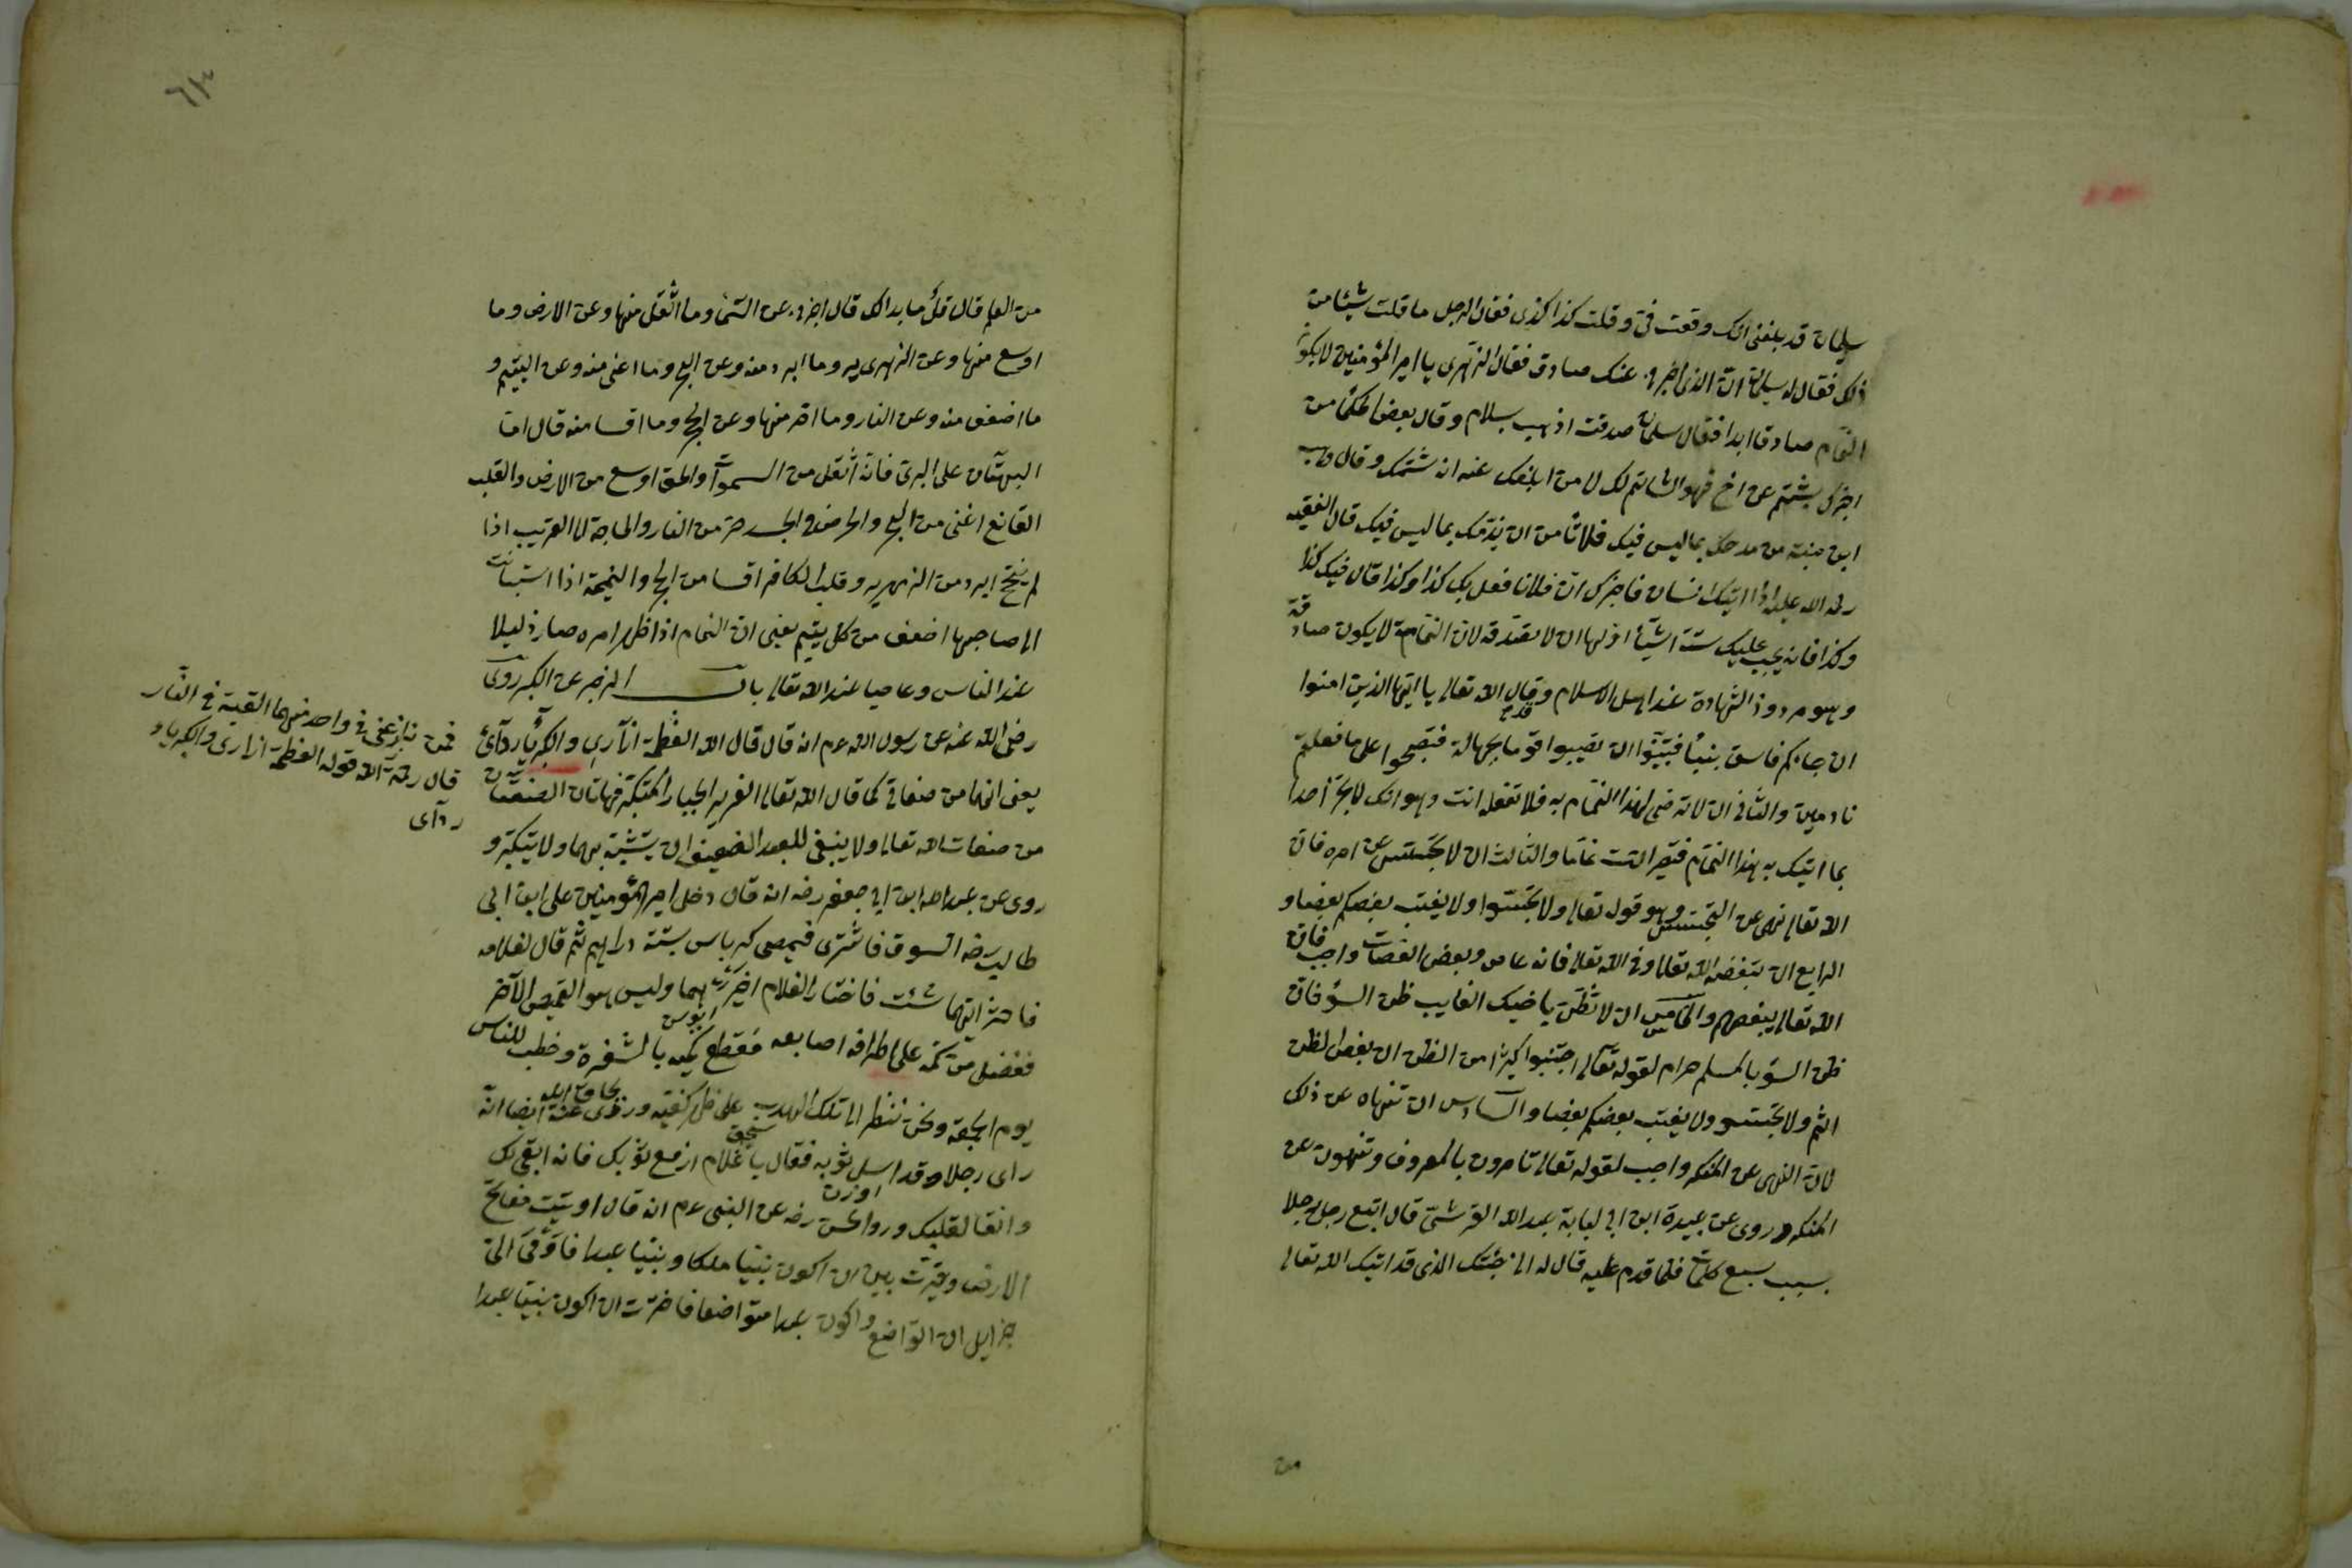 سليمان قد بلغني انك وقعت في وقلت كذا كذى فقال الرجل ما قلت شيئا من
ذلك فقال له سليمان ان الذي اخبرني عنك صادق فقال الزهري يا امير المؤمنين لا يكون
النمام صادقا ابدا فقال سليمان صدقت اذهب بسلام وقال بعض الحكما من
اخبرك بشتم عن اخ فهو الشاتم لك لا من ابلغك عنه انه شتمك وقال وهب
ابن منبه من مدحك بما ليس فيك فلا تأمن ان يذمك بما ليس فيك قال الفقيه
رحمة الله عليه اذا اتيك انسان فاخبرك ان فلانا فعل بك كذا وكذا قال فيك كذا
وكذا فانه يجب عليك ستة اشياء اولها ان لا تصدقه لان النمامة لا يكون صادقة
وهو مردود الشهادة عند اهل الاسلام وقال الله تعالى يا ايها الذين امنوا
ان جاءكم فاسق بنبأ فتبينوا ان تصيبوا قوما بجهالة فتصبحوا على ما فعلتم
نادمين والثاني ان لا ترضى لهذا النمام به فلا تفعله انت وهو انك لا تخبر احدا
بما اتيك به هذا النمام فتصير انت نماما والثالث ان لا تجسس عن امره فان
الله تعالى نهى عن التجسس وهو قوله تعالى ولا تجسسوا ولا يغتب بعضكم بعضا و
الرابع ان تبغضه الله تعالى وفي الله تعالى فانه عاص وبعض العصات واجب فان
الله تعالى يبغضهم والخامس ان لا تظن باخيك الغايب ظن السؤ فان
ظن السؤ بالمسلم حرام لقوله تعالى اجتنبوا كثيرا من الظن ان بعض الظن
اثم ولا تجسسوا ولا يغتب بعضكم بعضا والسادس ان تنهاه عن ذلك
لان النهي عن المنكر واجب لقوله تعالى تأمرون بالمعروف وتنهون عن
المنكر وروى عن عبيدة ابن ابي لبابة عبد الله القرشي قال اتبع رجل رجلا
بسبب سبع كلمات فلما قدم عليه قال له اني جئتك الذي قد اتيك الله تعالى
من
من العلم قال قل ما بدا لك قال اخبرني عن السماء وما اثقل منها وعن الارض وما
اوسع منها وعن الزمهرير وما ابرد منه وعن البحر وما اغنى منه وعن اليتيم و
ما اضعف منه وعن النار وما احر منها وعن الحجر وما اقسا منه قال اما
البهتان على البرئ فانه اثقل من السموات والحق اوسع من الارض والقلب
القانع اغنى من البحر والحرص والحسد حر من النار والحاجة الى القريب اذا
لم ينجح ابرد من الزمهرير وقلب الكافر اقسا من الحجر والنميمة اذا استبانت
الى صاحبها اضعف من كل يتيم يعني ان النمام اذا ظهر امره صار ذليلا
عند الناس وعاصيا عند الله تعالى باب الزجر عن الكبر روى
رضي الله عنه عن رسول الله عم انه قال قال الله العظمة ازاري والكبرياء ردائ
يعني انهما من صفاتي كما قال الله تعالى العزيز الجبار المتكبر فهاتان الصفتان
من صفات الله تعالى ولا ينبغي للعبد الضعيف ان يتشبه بهما ولا يتكبر و
روى عن عبد الله ابن ابي جعفر رضه انه قال دخل امير المؤمنين على ابن ابي
طالب رضه السوق فاشترى قميصى كرباس بستة دراهم ثم قال لغلامه
فاختر ايهما شئت فاختار الغلام اخيرهما وليس هو القميص الآخر
ففضل من كمه على اطراف اصابعه فقطع كميه بالشفرة وخطب للناس
يوم الجمعة ونحن ننظر الى تلك الهدب على ظهر كفيه وروى عنه ايضا انه
راى رجلا وقد اسبل ثوبه فقال يا غلام ارفع ثوبك فانه ابقى لك
وانقا لقلبك وروالحسن رضه عن النبي عم انه قال اوتيت مفاتح
الارض وخيرت بين ان اكون نبيا ملكا ونبيا عبدا فاومى الى
جبرايل ان التواضع واكون عبدا متواضعا فاخترت ان اكون نبيا عبدا
فمن نازعني في واحد منهما القيته في النار
قال رحمة الله قوله العظمة ازاري والكبرياء
ردآى